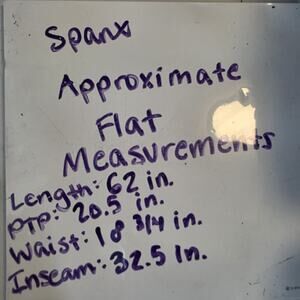 Spanx
Approximate
Flat
Measurements
Length: 62 in.
PTP: 20.5 in.
Waist: 18 3/4 in.
Inseam: 32.5 in.